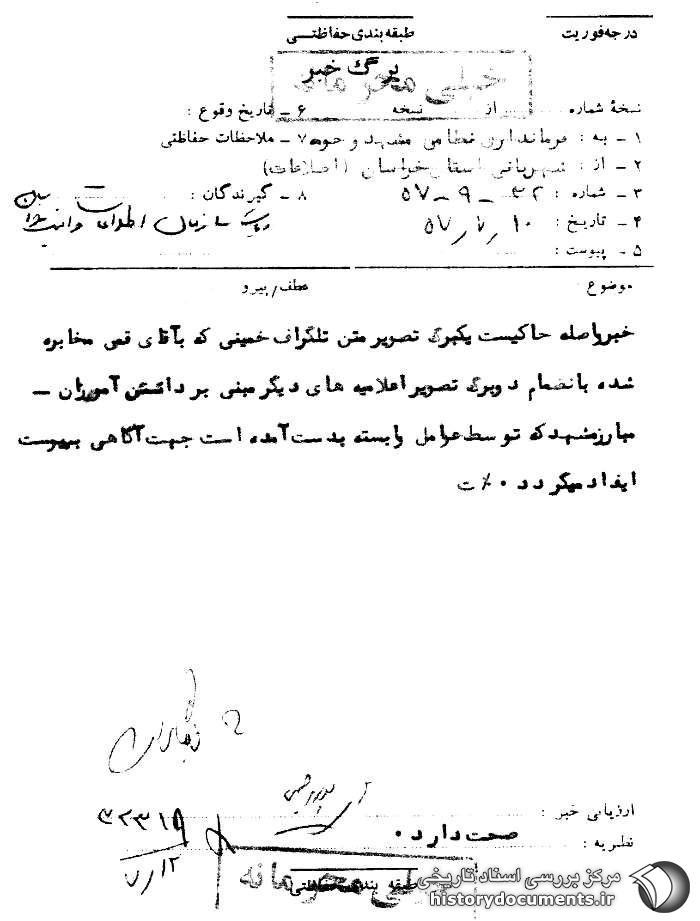 درجه فوریت
طبقه بندی حفاظتی
برگ خبر
خیلی محرمانه
نسخهٔ شماره از نسخه
۶ ـ تاریخ وقوع :
۱ ـ به : فرمانداری نظامی مشهد و حومه
۷ ـ ملاحظات حفاظتی
۲ ـ از : شهربانی استان خراسان (اطلاعات)
۳ ـ شماره : ۳۲ ـ ۹ ـ ۵۷
۸ ـ گیرندگان :
ریاست سازمان اطلاعات و امنیت
۴ ـ تاریخ : ۱۰ / ۷ / ۵۷
۵ ـ پیوست :
موضوع
عطف / پیرو
خبرواصله حاکیست یکبرگ تصویر متن تلگراف خمینی که بآقای قمی مخابره
شده بانضمام دوبرگ تصویر اعلامیه های دیگر مبنی بر داشتن آموزان ـ
مبارز مشهد که توسط عوامل وابسته بدست آمده است جهت آگاهی بپیوست
ایفاد میگردد ۰٪ ت
ارزیابی خبر :
نظریه : صحت دارد ۰
۳۲۳۱۹
۷/۱۲
طبقه بندی حفاظتی
خیلی محرمانه
مرکز بررسی اسناد تاریخی
historydocuments.ir